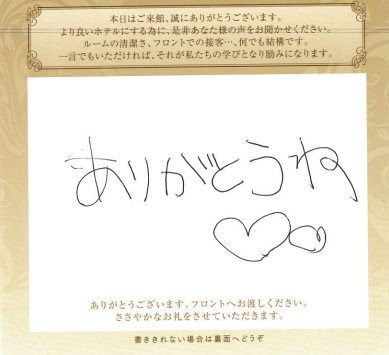 本日はご来館、誠にありがとうございます。
より良いホテルにする為に、是非あなた様の声をお聞かせください。
ルームの清潔さ、フロントでの接客…、何でも結構です。
一言でもいただければ、それが私たちの学びとなり励みになります。
ありがとうね
ありがとうございます。フロントへお渡しください。
ささやかなお礼をさせていただきます。
書ききれない場合は裏面へどうぞ